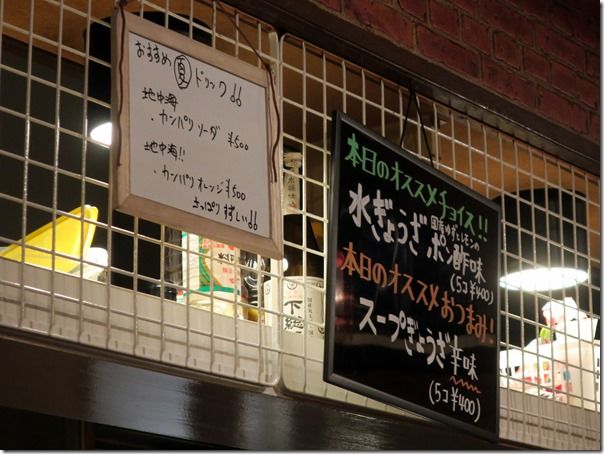 おすすめ夏ドリンク!!
地中海
・カンパリソーダ ¥500
地中海!!
・カンパリオレンジ ¥500
さっぱりずしい!!
本日のオススメチョイス!!
国産ゆず&レモン
水ぎょうざポン酢味
(5コ¥400)
本日のオススメおつまみ!
スープぎょうざ辛味
(5コ¥400)